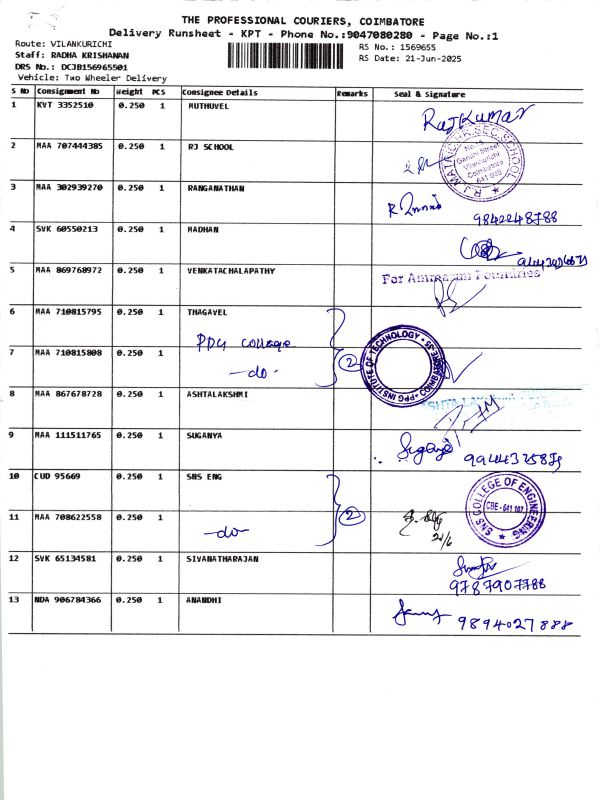 THE PROFESSIONAL COURIERS, COIMBATORE
Delivery Runsheet - KPT - Phone No.:9047080280 - Page No.:1
Route: VILANKURICHI
Staff: RADHA KRISHANAN
DRS No.: DCJB156965501
Vehicle: Two Wheeler Delivery
RS No.: 1569655
RS Date: 21-Jun-2025
S No Consignment No Weight PCS Consignee Details Remarks Seal & Signature
1 KVT 3352510 0.250 1 MUTHUVEL RajKumar
2 MAA 707444385 0.250 1 RJ SCHOOL
R.J MATRIC HR SEC SCHOOL
Gandhi Street
Vilankurichi
Coimbatore
641 035
3 MAA 302939270 0.250 1 RANGANATHAN 9842248788
4 SVK 60550213 0.250 1 MADHAN
5 MAA 869768972 0.250 1 VENKATACHALAPATHY
For Ammarun Foundries
6 MAA 710815795 0.250 1 THAGAVEL
PPG college
7 MAA 710815808 0.250 1 -do- 2
PPG INSTITUTE OF TECHNOLOGY COIMBATORE-35
8 MAA 867678728 0.250 1 ASHTALAKSHMI
9 MAA 111511765 0.250 1 SUGANYA Suganya
10 CUD 95669 0.250 1 SNS ENG
SNS COLLEGE OF ENGINEERING
CBE - 641 107
11 MAA 708622558 0.250 1 -do- 2 21/6
12 SVK 65134581 0.250 1 SIVANATHARAJAN
9787907788
13 NDA 906784366 0.250 1 ANANDHI 9894027888